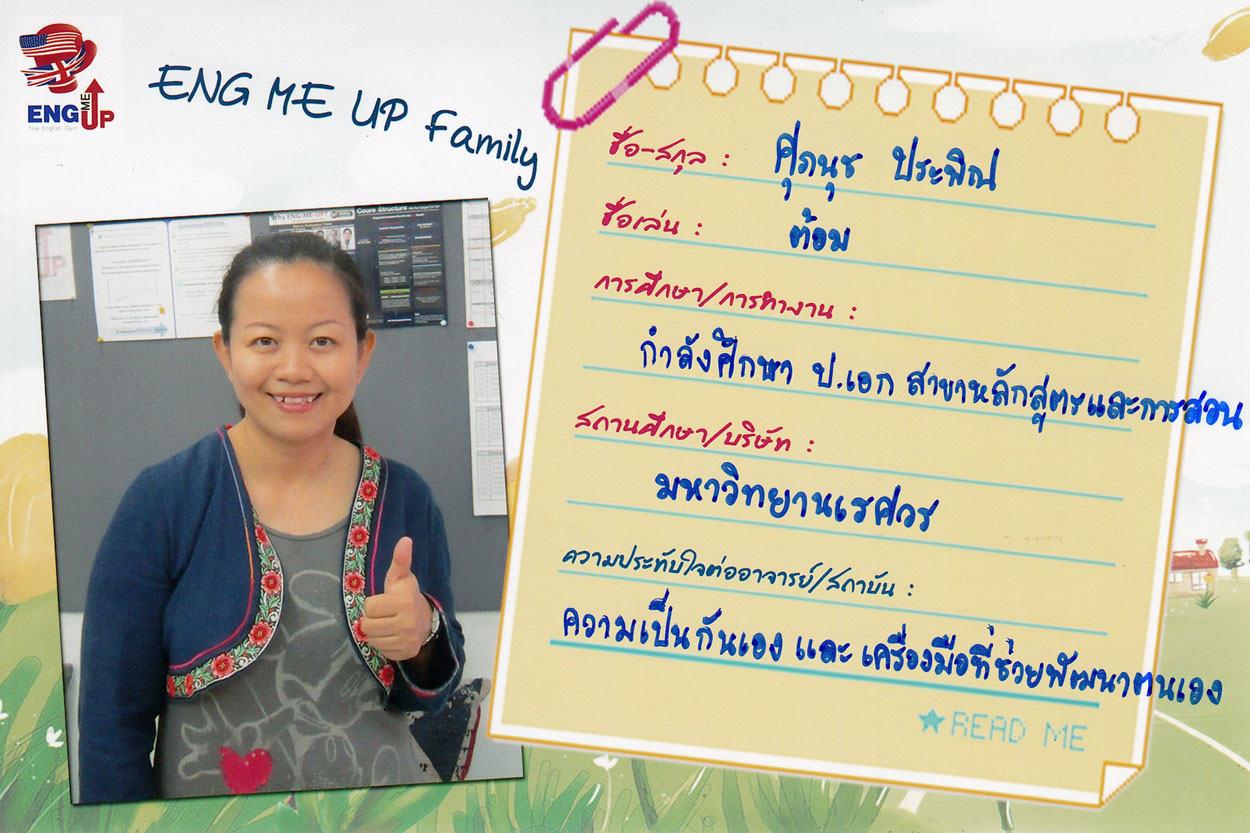 ENG ME UP
The English Gym
ENG ME UP Family
Why ENG ME UP?
Coure Structure
UP
ชื่อ-สกุล : ศุภนุช ประพิณ
ชื่อเล่น : ต้อม
การศึกษา/การทำงาน :
กำลังศึกษา ป.เอก สาขาหลักสูตรและการสอน
สถานศึกษา/บริษัท :
มหาวิทยานเรศวร
ความประทับใจต่ออาจารย์/สถาบัน :
ความเป็นกันเอง และ เครื่องมือที่ช่วยพัฒนาตนเอง
★READ ME